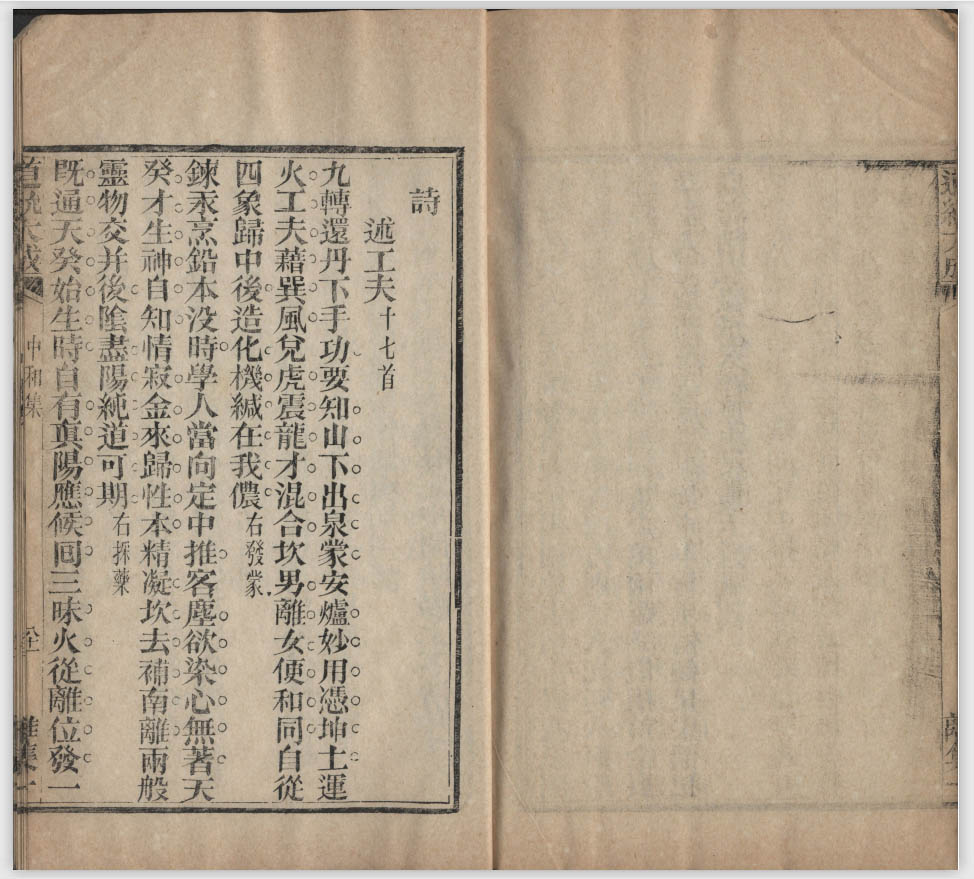 詩
述工夫十七首
九轉還丹下手功要知山下出泉蒙安爐妙用憑坤土運
火工夫藉巽風兌虎震龍才混合坎男離女便和同自從
四象歸中後造化機緘在我儂右發蒙
鍊汞烹鉛本没時學人當向定中推客塵欲染心無著天
癸才生神自知情寂金來歸性本精凝坎去補南離兩般
靈物交并後陰盡陽純道可期右採藥
既通天癸始生時自有真陽應候回三昧火從離位發一
道統大成
中和集